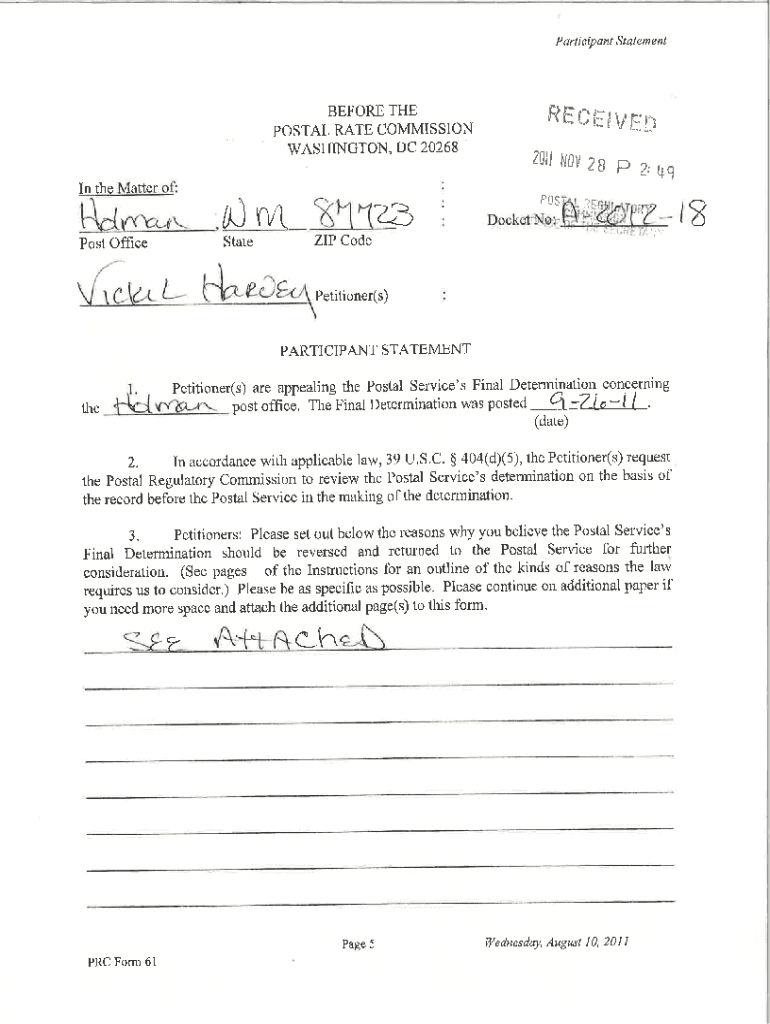 Participant Statement
BEFORE THE
POSTAL RATE COMMISSION
WASHINGTON, DC 20268
RECEIVED
2011 NOV 28 P 2:49
In the Matter of:
Holman NM 87723
Post Office State ZIP Code
POSTAL REGULATORY
Docket No: A-2012-18
Vicki L Harvey Petitioner(s) :
PARTICIPANT STATEMENT
1. Petitioner(s) are appealing the Postal Service's Final Determination concerning
the Holman post office. The Final Determination was posted 9-26-11.
(date)
2. In accordance with applicable law, 39 U.S.C. § 404(d)(5), the Petitioner(s) request
the Postal Regulatory Commission to review the Postal Service's determination on the basis of
the record before the Postal Service in the making of the determination.
3. Petitioners: Please set out below the reasons why you believe the Postal Service's
Final Determination should be reversed and returned to the Postal Service for further
consideration. (See pages of the Instructions for an outline of the kinds of reasons the law
requires us to consider.) Please be as specific as possible. Please continue on additional paper if
you need more space and attach the additional page(s) to this form.
SEE AttACheD
Page 5
Wednesday, August 10, 2011
PRC Form 61